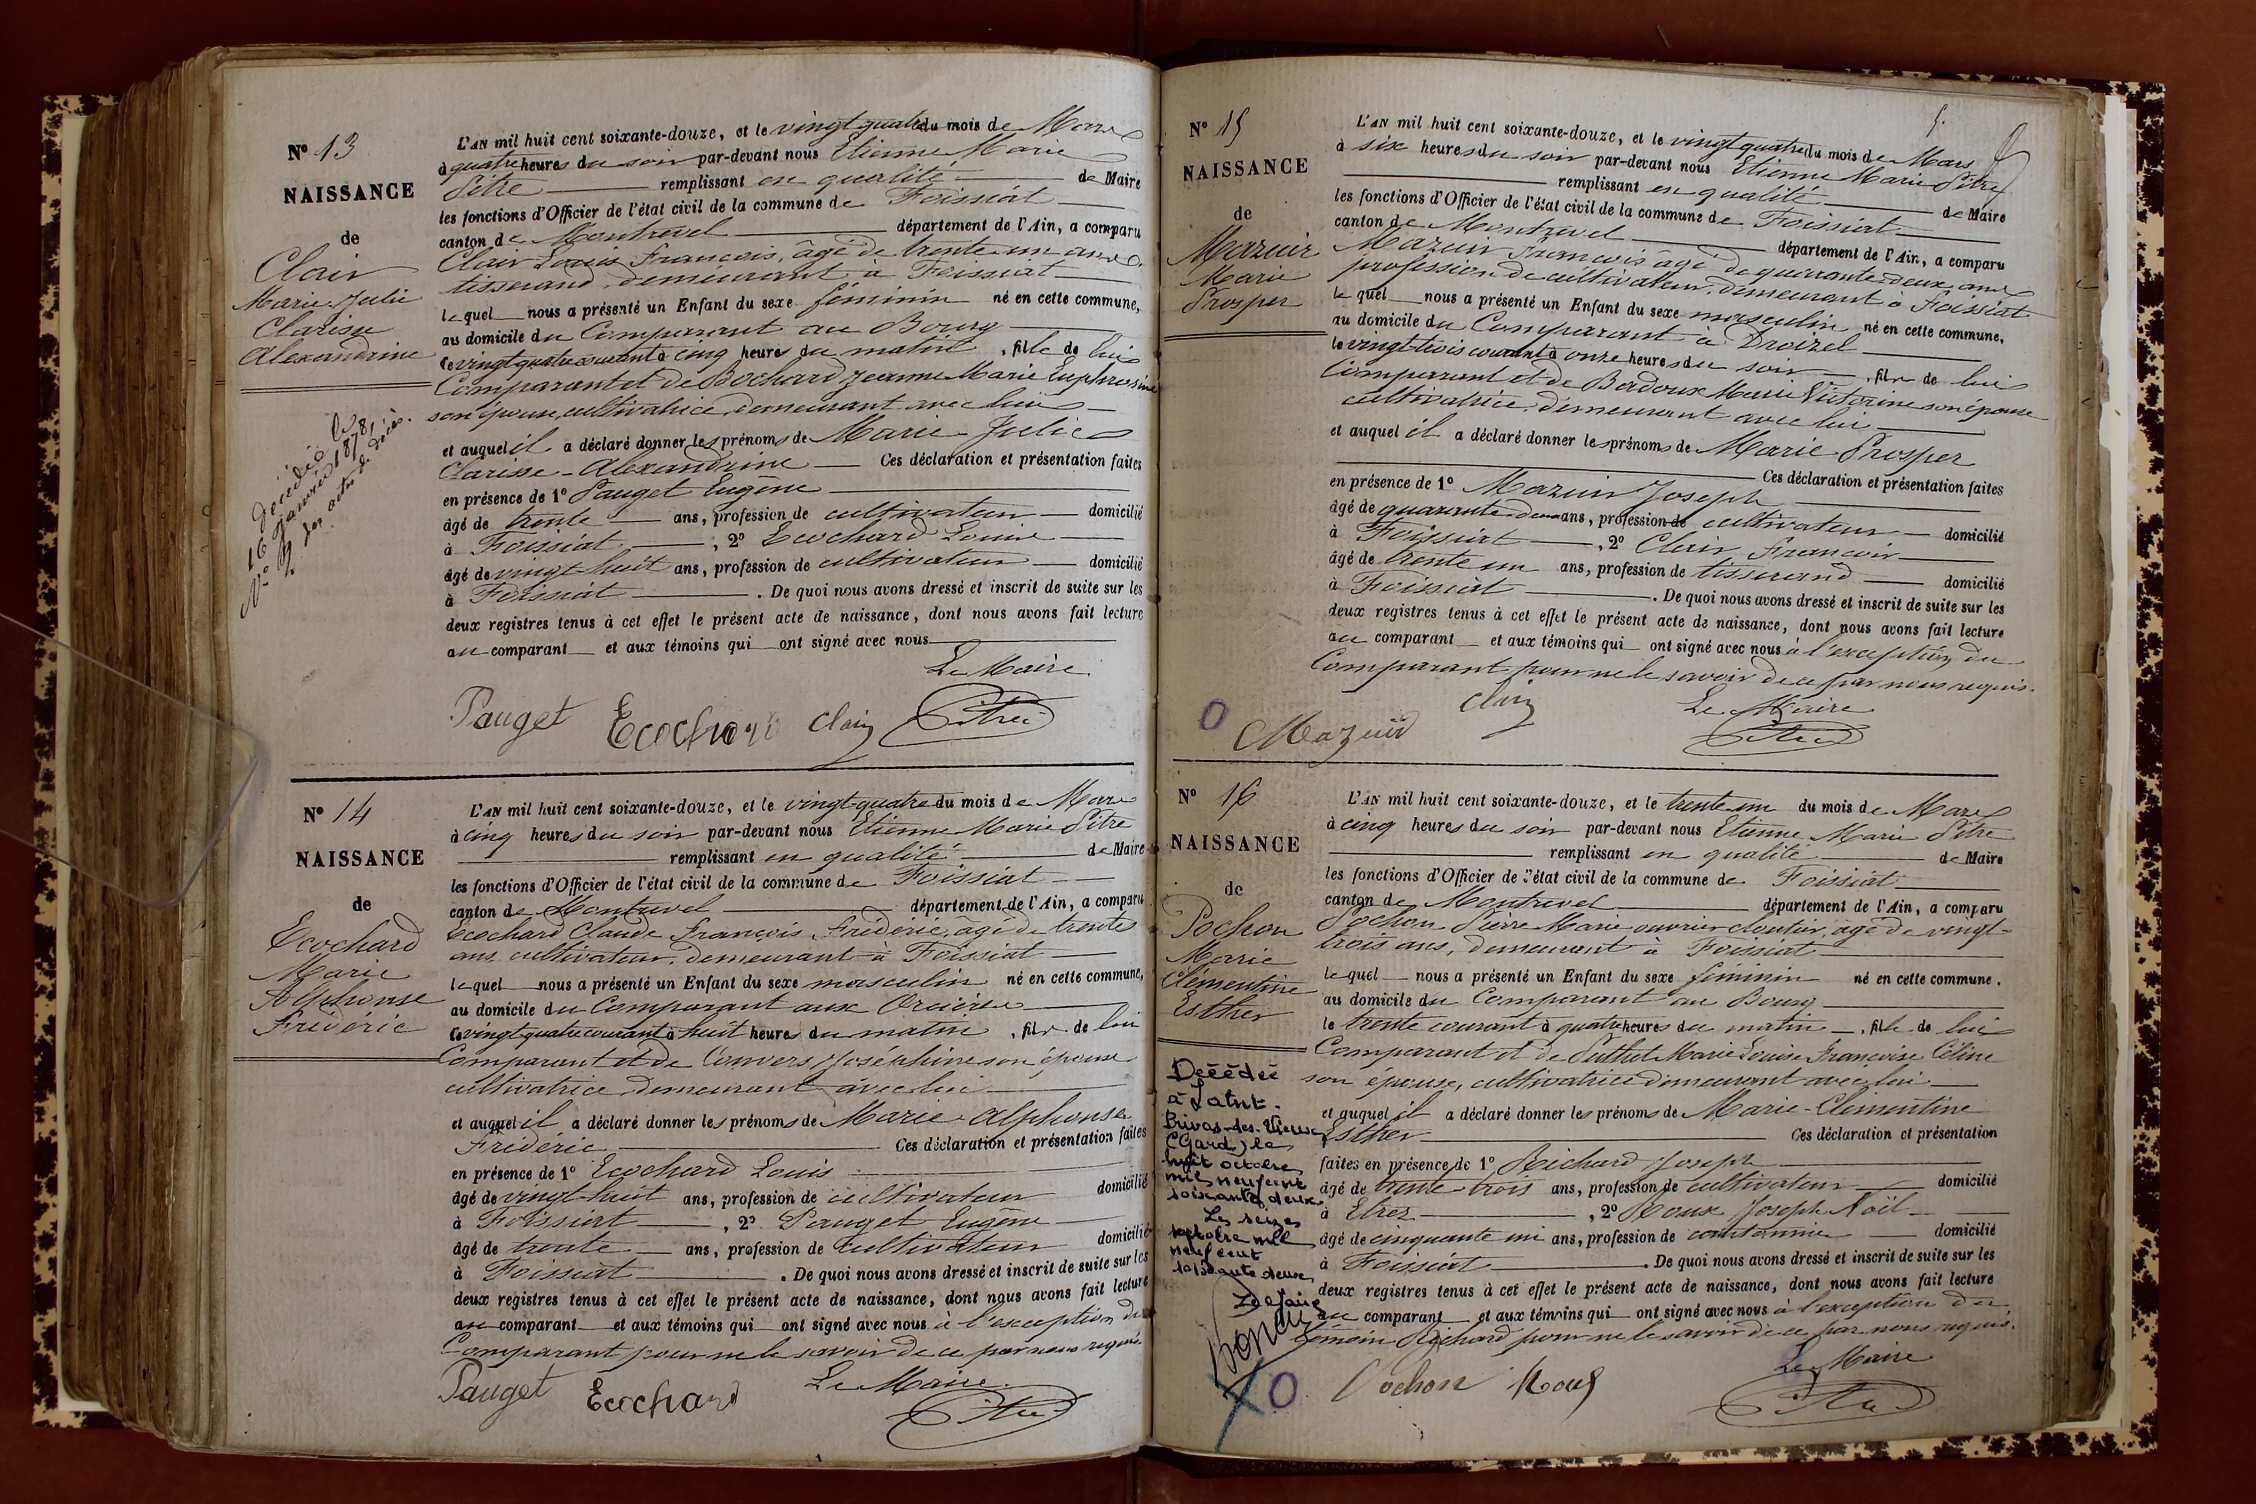 N° 13
NAISSANCE
de
Clair
Marie-Julie
Clarisse
Alexandrine
décédée le
16 janvier 1878,
N° 2 des actes de décès.
L'AN mil huit cent soixante-douze, et le vingt quatre du mois de Mars
à quatre heures du soir par-devant nous Etienne Marie
Pitre remplissant en qualité de Maire
les fonctions d'Officier de l'état civil de la commune de Foissiat
canton de Montrevel département de l'Ain, a comparu
Clair Louis François, âgé de trente un ans
tisserand, demeurant à Foissiat
lequel nous a présenté un Enfant du sexe féminin né en cette commune,
au domicile du Comparant au Bourg
le vingt quatre courant à cinq heures du matin, fille de lui
Comparant et de Bochard Jeanne Marie Euphrosine
son épouse, cultivatrice, demeurant avec lui
et auquel il a déclaré donner les prénoms de Marie-Julie
Clarisse-Alexandrine Ces déclaration et présentation faites
en présence de 1° Pauget Eugène
âgé de trente ans, profession de cultivateur domicilié
à Foissiat, 2° Ecochard Louis
âgé de vingt-huit ans, profession de cultivateur domicilié
à Foissiat. De quoi nous avons dressé et inscrit de suite sur les
deux registres tenus à cet effet le présent acte de naissance, dont nous avons fait lecture
au comparant et aux témoins qui ont signé avec nous
Le Maire
Pauget Ecochard Clair Pitre
N° 14
NAISSANCE
de
Ecochard
Marie
Alphonse
Frédéric
L'AN mil huit cent soixante-douze, et le vingt-quatre du mois de Mars
à cinq heures du soir par-devant nous Etienne Marie Pitre
remplissant en qualité de Maire
les fonctions d'Officier de l'état civil de la commune de Foissiat
canton de Montrevel département de l'Ain, a comparu
Ecochard Claude François Frédéric, âgé de trente
ans, cultivateur, demeurant à Foissiat
lequel nous a présenté un Enfant du sexe masculin né en cette commune,
au domicile du Comparant aux
le vingt quatre courant à huit heures du matin, fils de lui
Comparant et de Convers Joséphine son épouse
cultivatrice demeurant avec lui
et auquel il a déclaré donner les prénoms de Marie-Alphonse
Frédéric Ces déclaration et présentation faites
en présence de 1° Ecochard Louis
âgé de vingt-huit ans, profession de cultivateur domicilié
à Foissiat, 2° Pauget Eugène
âgé de trente ans, profession de cultivateur domicilié
à Foissiat. De quoi nous avons dressé et inscrit de suite sur les
deux registres tenus à cet effet le présent acte de naissance, dont nous avons fait lecture
au comparant et aux témoins qui ont signé avec nous à l'exception du
Comparant pour ne le savoir de ce par nous requis
Le Maire
Pauget Ecochard Pitre
5.
N° 15
NAISSANCE
de
Mazuir
Marie
Prosper
L'AN mil huit cent soixante-douze, et le vingt quatre du mois de Mars
à six heures du soir par-devant nous Etienne Marie Pitre
remplissant en qualité de Maire
les fonctions d'Officier de l'état civil de la commune de Foissiat
canton de Montrevel département de l'Ain, a comparu
Mazuir François âgé de quarante-deux ans
profession de cultivateur, demeurant à Foissiat
lequel nous a présenté un Enfant du sexe masculin né en cette commune,
au domicile du Comparant à Droizel
le vingt-trois courant à onze heures du soir, fils de lui
Comparant et de Badoux Marie Victorine son épouse
cultivatrice, demeurant avec lui
et auquel il a déclaré donner les prénoms de Marie Prosper
Ces déclaration et présentation faites
en présence de 1° Mazuir Joseph
âgé de quarante deux ans, profession de cultivateur domicilié
à Foissiat, 2° Clair François
âgé de trente un ans, profession de tisserand domicilié
à Foissiat. De quoi nous avons dressé et inscrit de suite sur les
deux registres tenus à cet effet le présent acte de naissance, dont nous avons fait lecture
au comparant et aux témoins qui ont signé avec nous à l'exception du
Comparant pour ne le savoir de ce par nous requis.
Clair Le Maire
Mazuir Pitre
N° 16
NAISSANCE
de
Pochon
Marie
Clémentine
Esther
Décédée
à Saint-
Privas-des-Vieux
(Gard) le
huit octobre
mil neuf cent
soixante deux
Le seize
octobre mil
neuf cent
soixante deux
Le Maire
L'AN mil huit cent soixante-douze, et le trente un du mois de Mars
à cinq heures du soir par-devant nous Etienne Marie Pitre
remplissant en qualité de Maire
les fonctions d'Officier de l'état civil de la commune de Foissiat
canton de Montrevel département de l'Ain, a comparu
Pochon Pierre Marie, ouvrier cloutier, âgé de vingt-
trois ans, demeurant à Foissiat
lequel nous a présenté un Enfant du sexe féminin né en cette commune,
au domicile du Comparant au Bourg
le trente courant à quatre heures du matin, fille de lui
Comparant et de Puthet Marie Louise Françoise Céline
son épouse, cultivatrice demeurant avec lui
et auquel il a déclaré donner les prénoms de Marie-Clémentine
Esther Ces déclaration et présentation
faites en présence de 1° Richard Joseph
âgé de trente-trois ans, profession de cultivateur domicilié
à Etrez, 2° Roux Joseph Noël
âgé de cinquante un ans, profession de cantonnier domicilié
à Foissiat. De quoi nous avons dressé et inscrit de suite sur les
deux registres tenus à cet effet le présent acte de naissance, dont nous avons fait lecture
au comparant et aux témoins qui ont signé avec nous à l'exception du
témoin Richard pour ne le savoir de ce par nous requis.
Le Maire
Pochon Roux Pitre